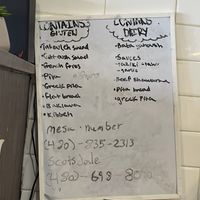 CONTAINS
GLUTEN
• Tabouleh salad
• Fattoush salad
• French fries
• Pita
• Greek pita
• Flat bread
• Baklawa
• Kibbeh
CONTAINS
DAIRY
• Baba ganoush
• Sauces
• Beef shawarma
• Pita bread
• greek Pita
Mesa number
(480)-835-2313
Scottsdale
(480)-698-80